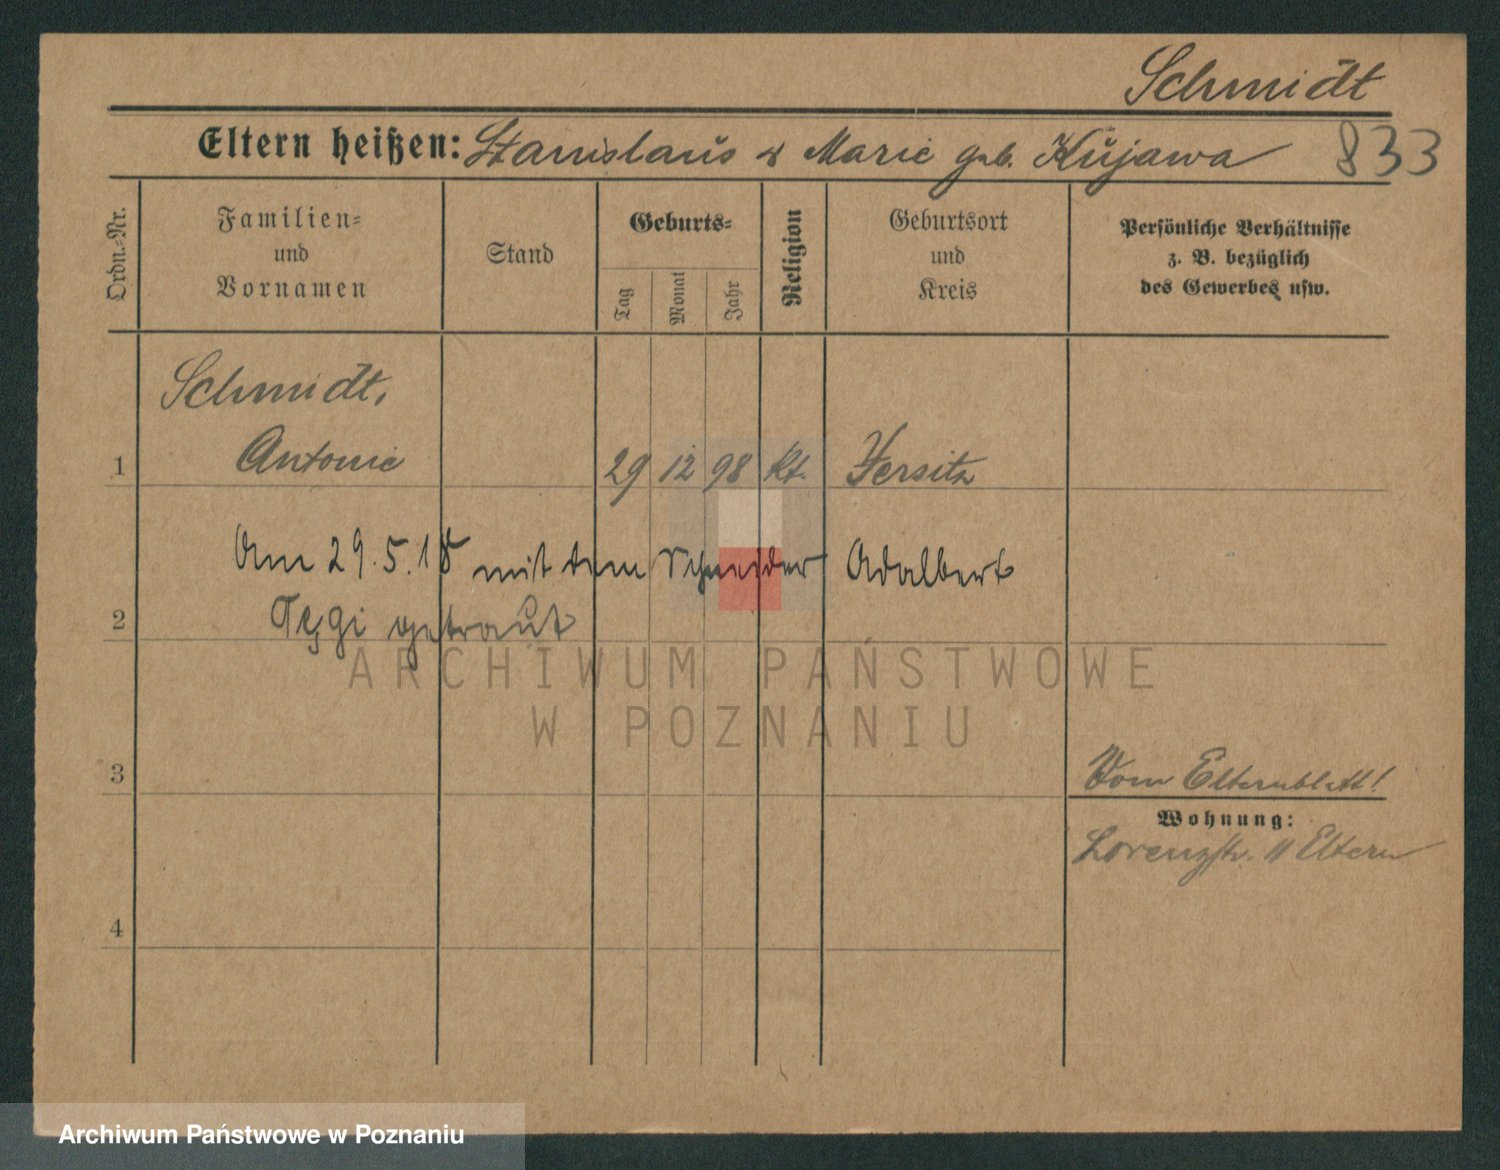 Schmidt
Eltern heißen: Stanislaus & Marie geb. Kujawa 833
Ordn.=Nr.
Familien=
und
Vornamen
Stand
Geburts=
Tag
Monat
Jahr
Religion
Geburtsort
und
Kreis
Persönliche Verhältnisse
z. B. bezüglich
des Gewerbes usw.
Schmidt,
1 Antonie 29 12 98 kt. Jersitz
Am 29.5.18 mit dem Schneider Adalbert
2 getraut
ARCHIWUM PAŃSTWOWE
W POZNANIU
3 Vom Elternblatt!
Wohnung:
Lorenzstr. 11 Eltern
4
Archiwum Państwowe w Poznaniu